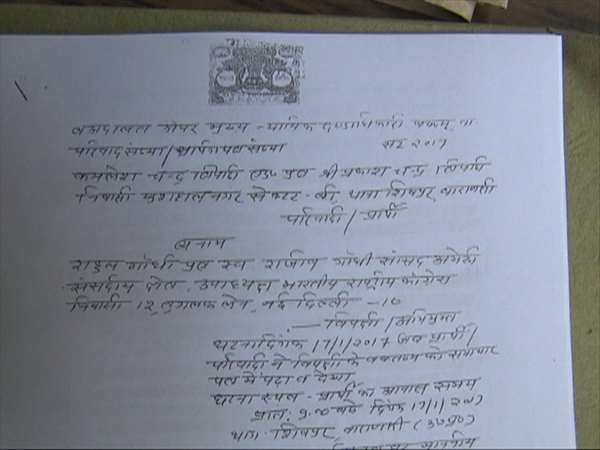 बअदालत श्रीमान मुख्य न्यायिक दण्डाधिकारी प्रथम, वा.
परिवाद संख्या / प्रार्थनापत्र संख्या सन् 2017
कमलेश चन्द्र त्रिपाठी एड0 पुत्र श्री प्रकाश चन्द्र त्रिपाठी
निवासी नगर सेक्टर-बी, थाना शिवपुर वाराणसी
परिवादी / प्रार्थी
बनाम
राहुल गाँधी पुत्र स्व राजीव गाँधी सांसद अमेठी
संसदीय क्षेत्र, उपाध्यक्ष भारतीय राष्ट्रीय कांग्रेस
निवासी 12 तुगलक लेन, नई दिल्ली -10
:— विपक्षी / अभियुक्त
घटना दिनांक 17/1/2017 जब प्रार्थी /
परिवादी ने विपक्षी के वक्तव्य को समाचार
पत्र में पढ़ा व देखा
घटना स्थल - प्रार्थी का आवास समय
प्रात: 9.00 बजे दिनांक 17/1/2017
थाना शिवपुर, वाराणसी (उ0प्र0)